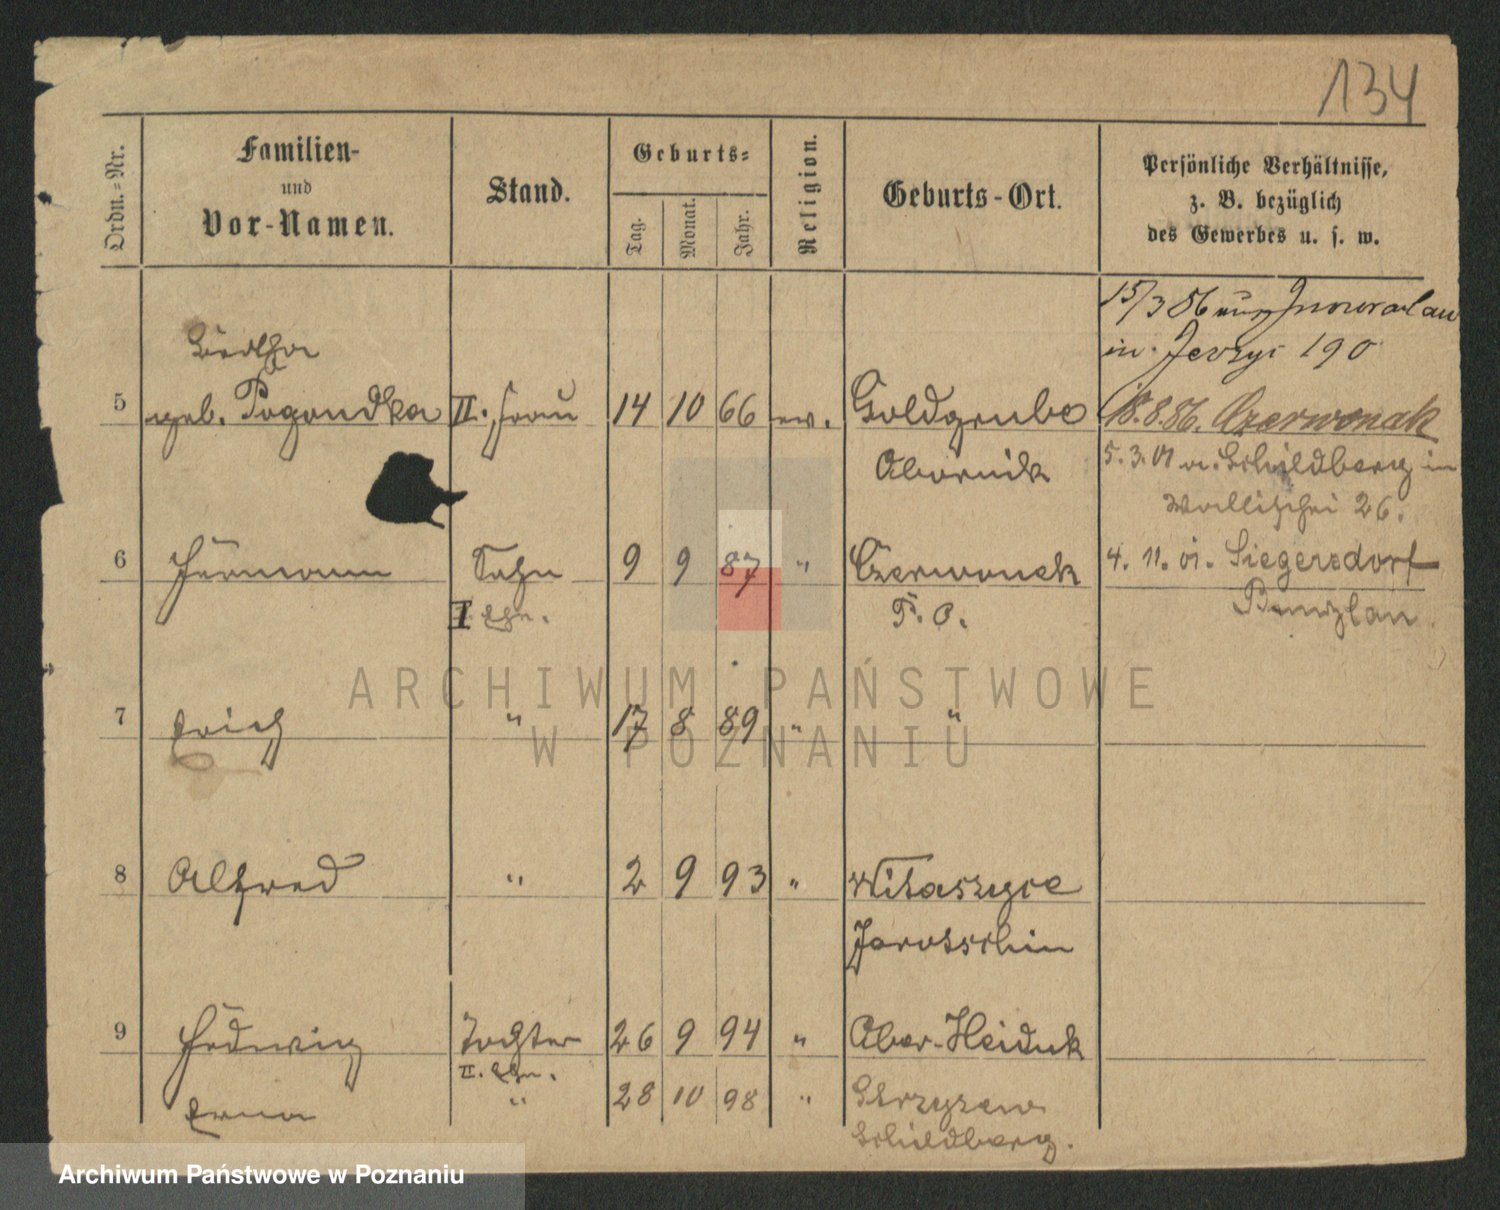 134
Ordn.-Nr.
Familien-
und
Vor-Namen.
Stand.
Geburts-
Tag.
Monat.
Jahr.
Religion.
Geburts-Ort.
Persönliche Verhältnisse,
z. B. bezüglich
des Gewerbes u. s. w.
15/3 86 aus Inowraclaw
in Jerzyc 190
Bertha
5 geb. Pogondka II. Frau 14 10 66 ev. Goldgrube 18.8.86. Czerwonak
Obornik 5.3.01 v. Schildberg in
Wallischei 26.
6 Hermann Sohn 9 9 87 " Czerwonak 4. 11. 01. Siegersdorf
I Ehe. P. O. Bunzlau
7 Erich " 17 8 89 " "
8 Alfred " 2 9 93 " Witaszyce
Jarotschin
9 Hedwig Tochter 26 9 94 " Ober-Heiduk
II. Ehe.
Erna " 28 10 98 " Strzyzew
Schildberg.
ARCHIWUM PAŃSTWOWE
W POZNANIU
Archiwum Państwowe w Poznaniu